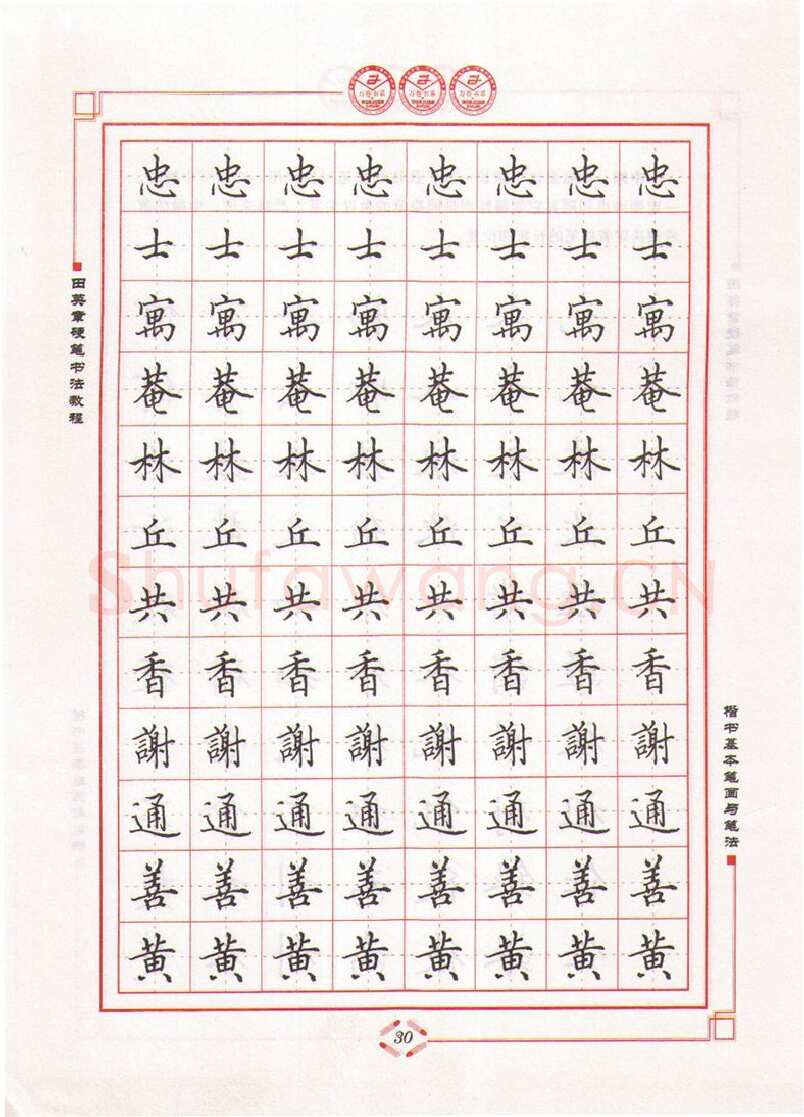 万卷书系 万卷书系 万卷书系
忠 忠 忠 忠 忠 忠 忠 忠
士 士 士 士 士 士 士 士
寓 寓 寓 寓 寓 寓 寓 寓
菴 菴 菴 菴 菴 菴 菴 菴
林 林 林 林 林 林 林 林
丘 丘 丘 丘 丘 丘 丘 丘
共 共 共 共 共 共 共 共
香 香 香 香 香 香 香 香
謝 謝 謝 謝 謝 謝 謝 謝
通 通 通 通 通 通 通 通
善 善 善 善 善 善 善 善
黄 黄 黄 黄 黄 黄 黄 黄
田英章硬笔书法教程
楷书基本笔画与笔法
Shufawang.CN
30